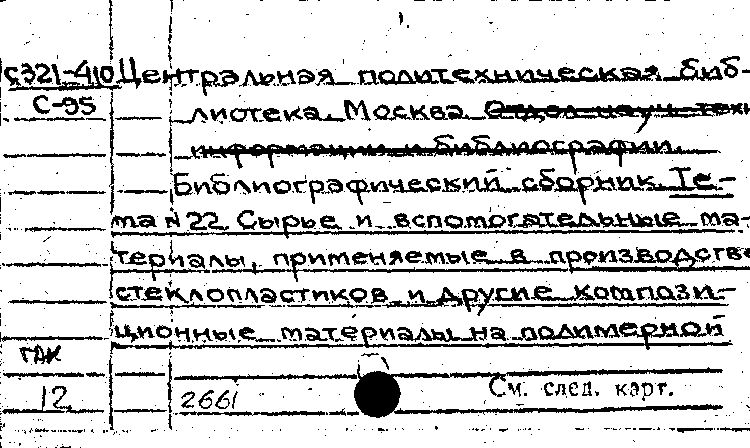 С321-410 Центральная политехническая биб-
С-95 лиотека. Москва. Отдел науч. техн
информации и библиографии.
Библиографический сборник. Те-
ма N 22. Сырье и вспомогательные ма-
териалы, применяемые в производстве
стеклопластиков и другие компози-
ционные материалы на полимерной
ГАК
12 2661 См. след. карт.